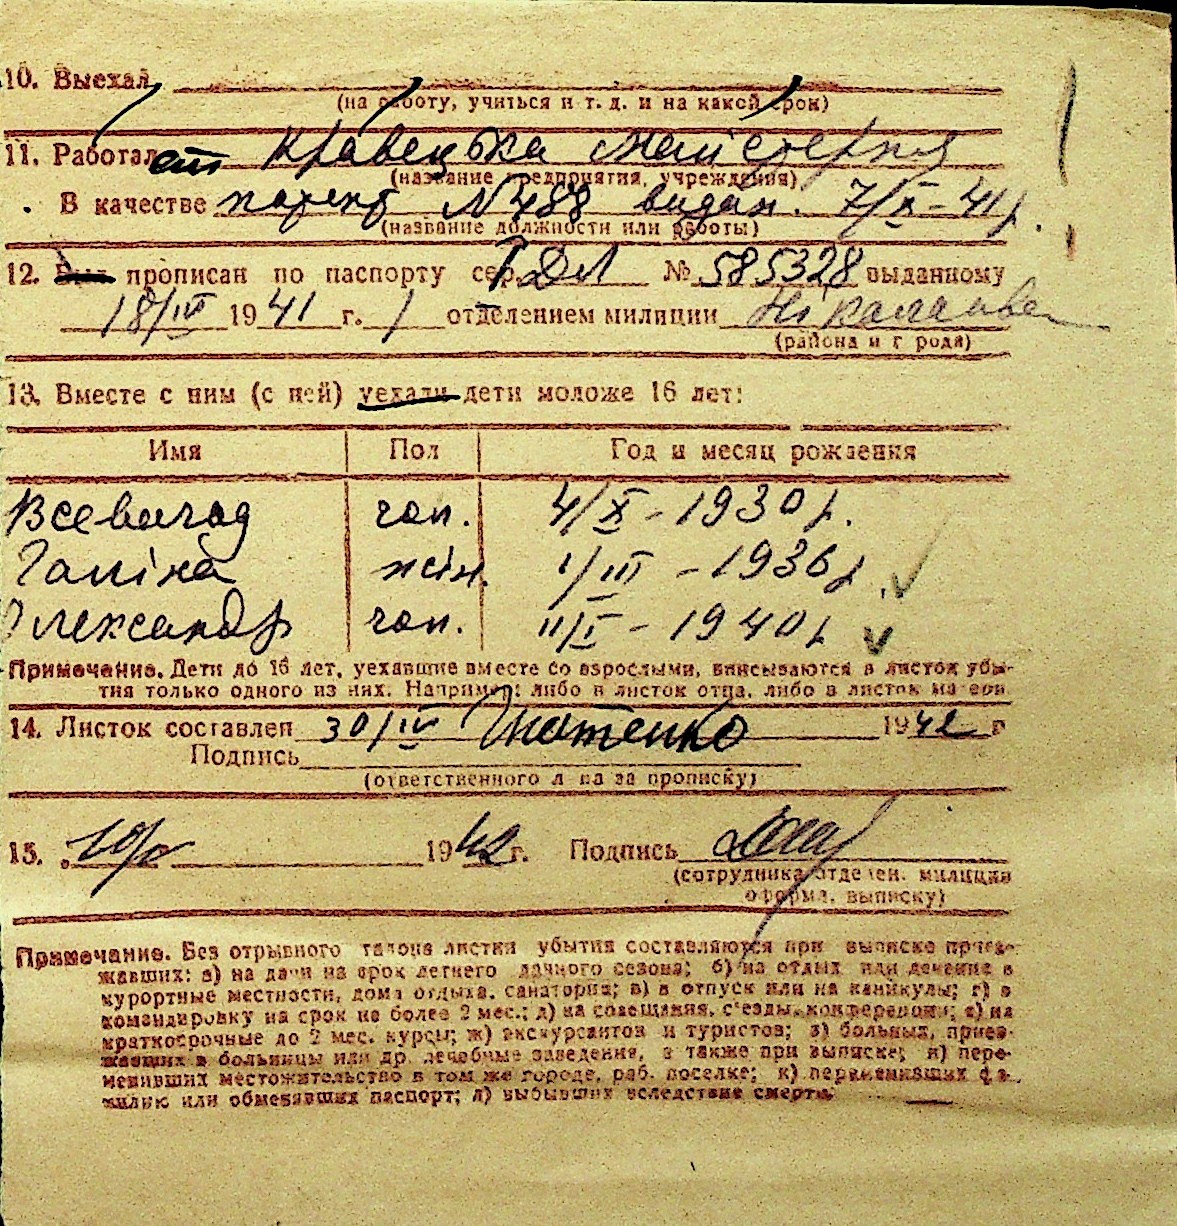 10. Выехал
(на работу, учиться и т. д. и на какой срок)
11. Работает Кравецька майстерня
(название предприятия, учреждения)
В качестве патент №488 видан. 7/X-41р.
(название должности или работы)
12. Был прописан по паспорту сер. ДЛ № 585328 выданному
18/IV 1941 г. 1 отделением милиции
(района и города)
13. Вместе с ним (с ней) уехали дети моложе 16 лет:
Имя Пол Год и месяц рождения
Всеволод чол. 4/X-1930р.
Галіна жін. 1/III-1936р
Олександр чол. 11/I-1940р
Примечание. Дети до 16 лет, уехавшие вместе со взрослыми, вписываются в листок убы-
тия только одного из них. Например: либо в листок отца, либо в листок матери
14. Листок составлен 30/IV Гнатенко 1942 г
Подпись
(ответственного лица за прописку)
15. 1942г. Подпись
(сотрудника отделен. милиции
оформл. выписку)
Примечание. Без отрывного талона листки убытия составляются при выписке приез-
жавших: а) на дачи на срок летнего дачного сезона; б) на отдых или лечение в
курортные местности, дома отдыха, санатории; в) в отпуск или на каникулы; г) в
командировку на срок не более 2 мес.; д) на совещания, съезды, конференции; е) на
краткосрочные до 2 мес. курсы; ж) экскурсантов и туристов; з) больных, приез-
жавших в больницы или др. лечебные заведения, а также при выписке; и) пере-
менивших местожительство в том же городе, раб. поселке; к) переменивших фа-
милию или обменявших паспорт; л) выбывших вследствие смерти.